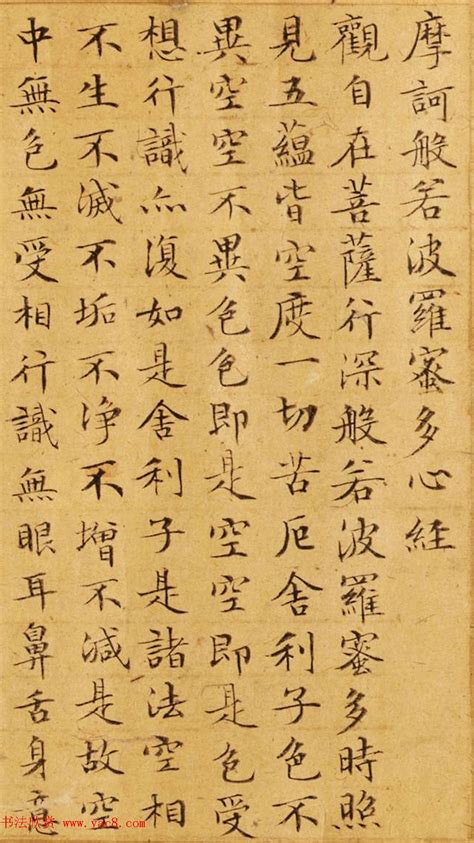 摩訶般若波羅蜜多心經
觀自在菩薩行深般若波羅蜜多時照
見五蘊皆空度一切苦厄舍利子色不
異空空不異色色即是空空即是色受
想行識亦復如是舍利子是諸法空相
不生不滅不垢不净不增不減是故空
中無色無受相行識無眼耳鼻舌身意
书法欣赏 www.yac8.com